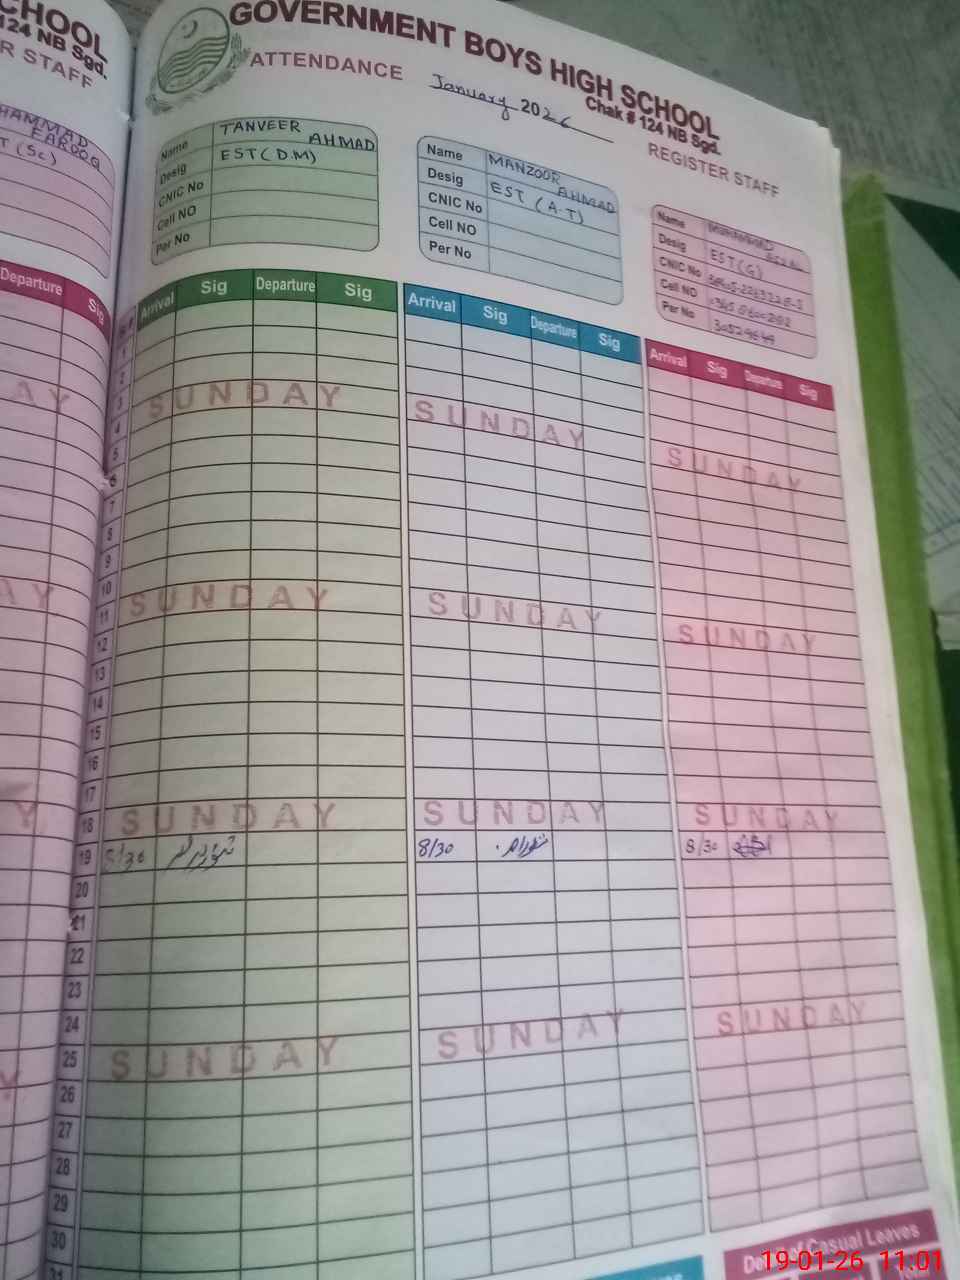 CHOOL
124 NB Sgd.
R STAFF
HAMMAD
FAROOQ
T (Sc)
Departure Sig
GOVERNMENT BOYS HIGH SCHOOL
Chak # 124 NB Sgd.
ATTENDANCE January 2026 REGISTER STAFF
Name TANVEER AHMAD
Desig EST (D.M)
CNIC No
Cell NO
Per No
Name MANZOOR AHMAD
Desig EST (A-T)
CNIC No
Cell NO
Per No
Name
Desig EST(G)
CNIC No
Cell NO
Per No
Arrival Sig Departure Sig
Arrival Sig Departure Sig
Arrival Sig Departure Sig
1
2
3
4 SUNDAY SUNDAY SUNDAY
5
6
7
8
9
10
11 SUNDAY SUNDAY SUNDAY
12
13
14
15
16
17
18 SUNDAY SUNDAY SUNDAY
19 8/30 8/30 8/30
20
21
22
23
24
25 SUNDAY SUNDAY SUNDAY
26
27
28
29
30
31
Casual Leaves
19-01-26 11:01